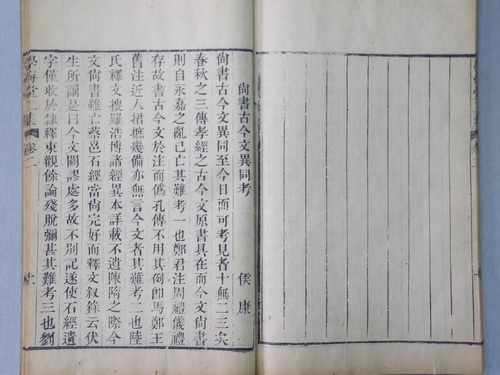 尙書古今文異同考
侯康
尙書古今文異同至今日而可考見者十無二三矣
春秋之三傳孝經之古今文原書具在而今文尙書
則自永嘉之亂已亡其難考一也鄭君注周禮儀禮
存故書古今文於注而僞孔傳不用其例卽馬鄭王
舊注近人捃摭幾備亦無言今文者其難考二也陸
氏釋文搜羅浩博諸經異本詳載不遺陳隋之際今
文尙書雖亡蔡邕石經當尙完好而釋文叙錄云伏
生所誦是曰今文闕謬處多故不別記遂使石經遺
字僅收於隸釋東觀餘論殘脫彌甚其難考三也劉
學海堂二集
卷二